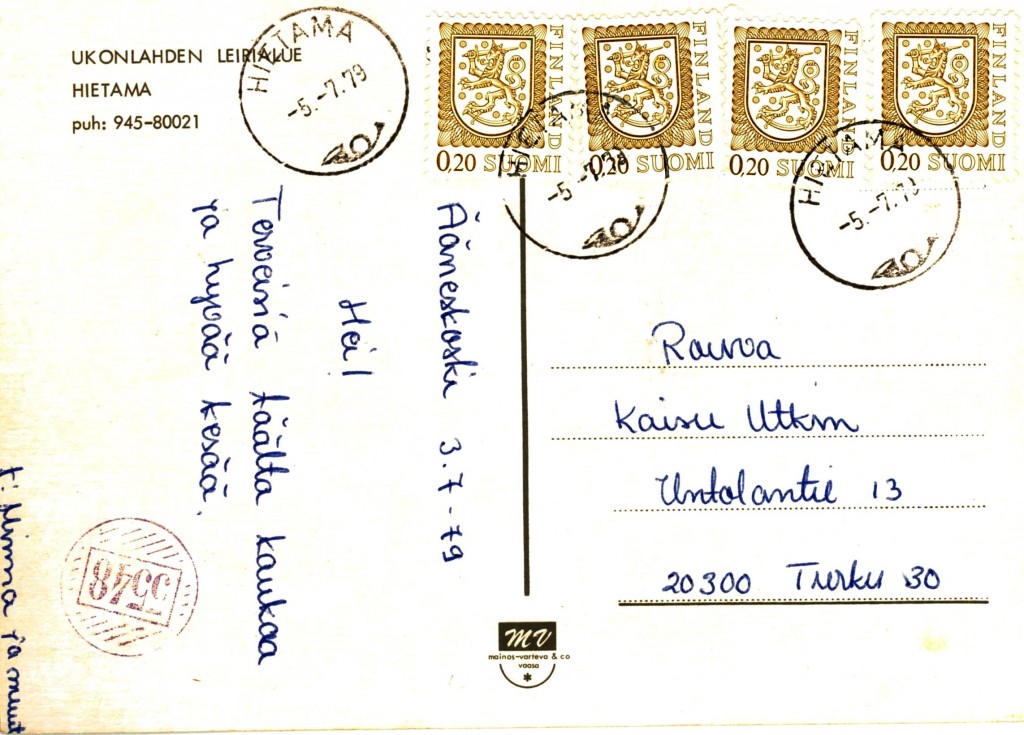 UKONLAHDEN LEIRIALUE
HIETAMA
puh: 945-80021
HIETAMA
-5.-7.79
FINLAND
0,20 SUOMI
FINLAND
0,20 SUOMI
FINLAND
0,20 SUOMI
FINLAND
0,20 SUOMI
HIETAMA
-5.-7.79
HIETAMA
-5.-7.79
Äänekoski 3.7-79
Hei!
Terveisiä täältä kaukaa
ja hyvää kesää.
t: Minna ja muut
5548
Rouva
Kaisu Utkm
Untolantie 13
20300 Turku 30
MV
mainos-varteva & co
vaasa